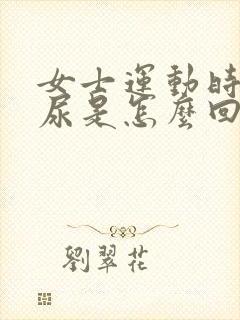 女士運動時
尿是怎麼回
劉翠花